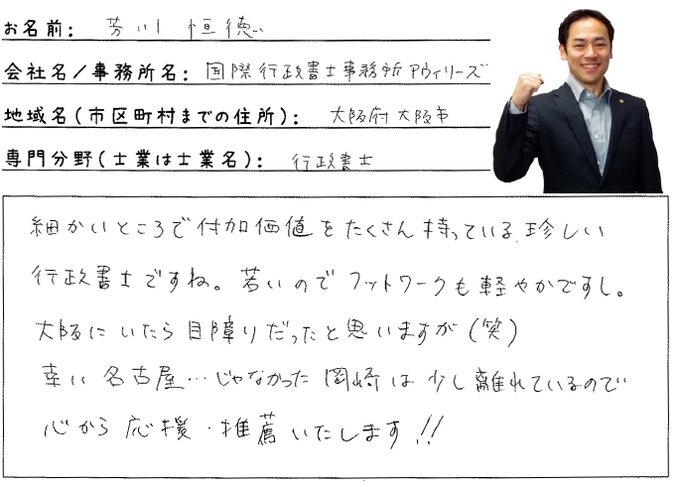 お名前: 芳川 恒徳
会社名/事務所名: 国際行政書士事務所アヴィリーズ
地域名(市区町村までの住所): 大阪府大阪市
専門分野(士業は士業名): 行政書士
細かいところで付加価値をたくさん持っている、珍しい
行政書士ですね。若いのでフットワークも軽やかですし。
大阪にいたら目障りだったと思いますが(笑)
幸い名古屋…じゃなかった岡崎は少し離れているので
心から応援・推薦いたします!!